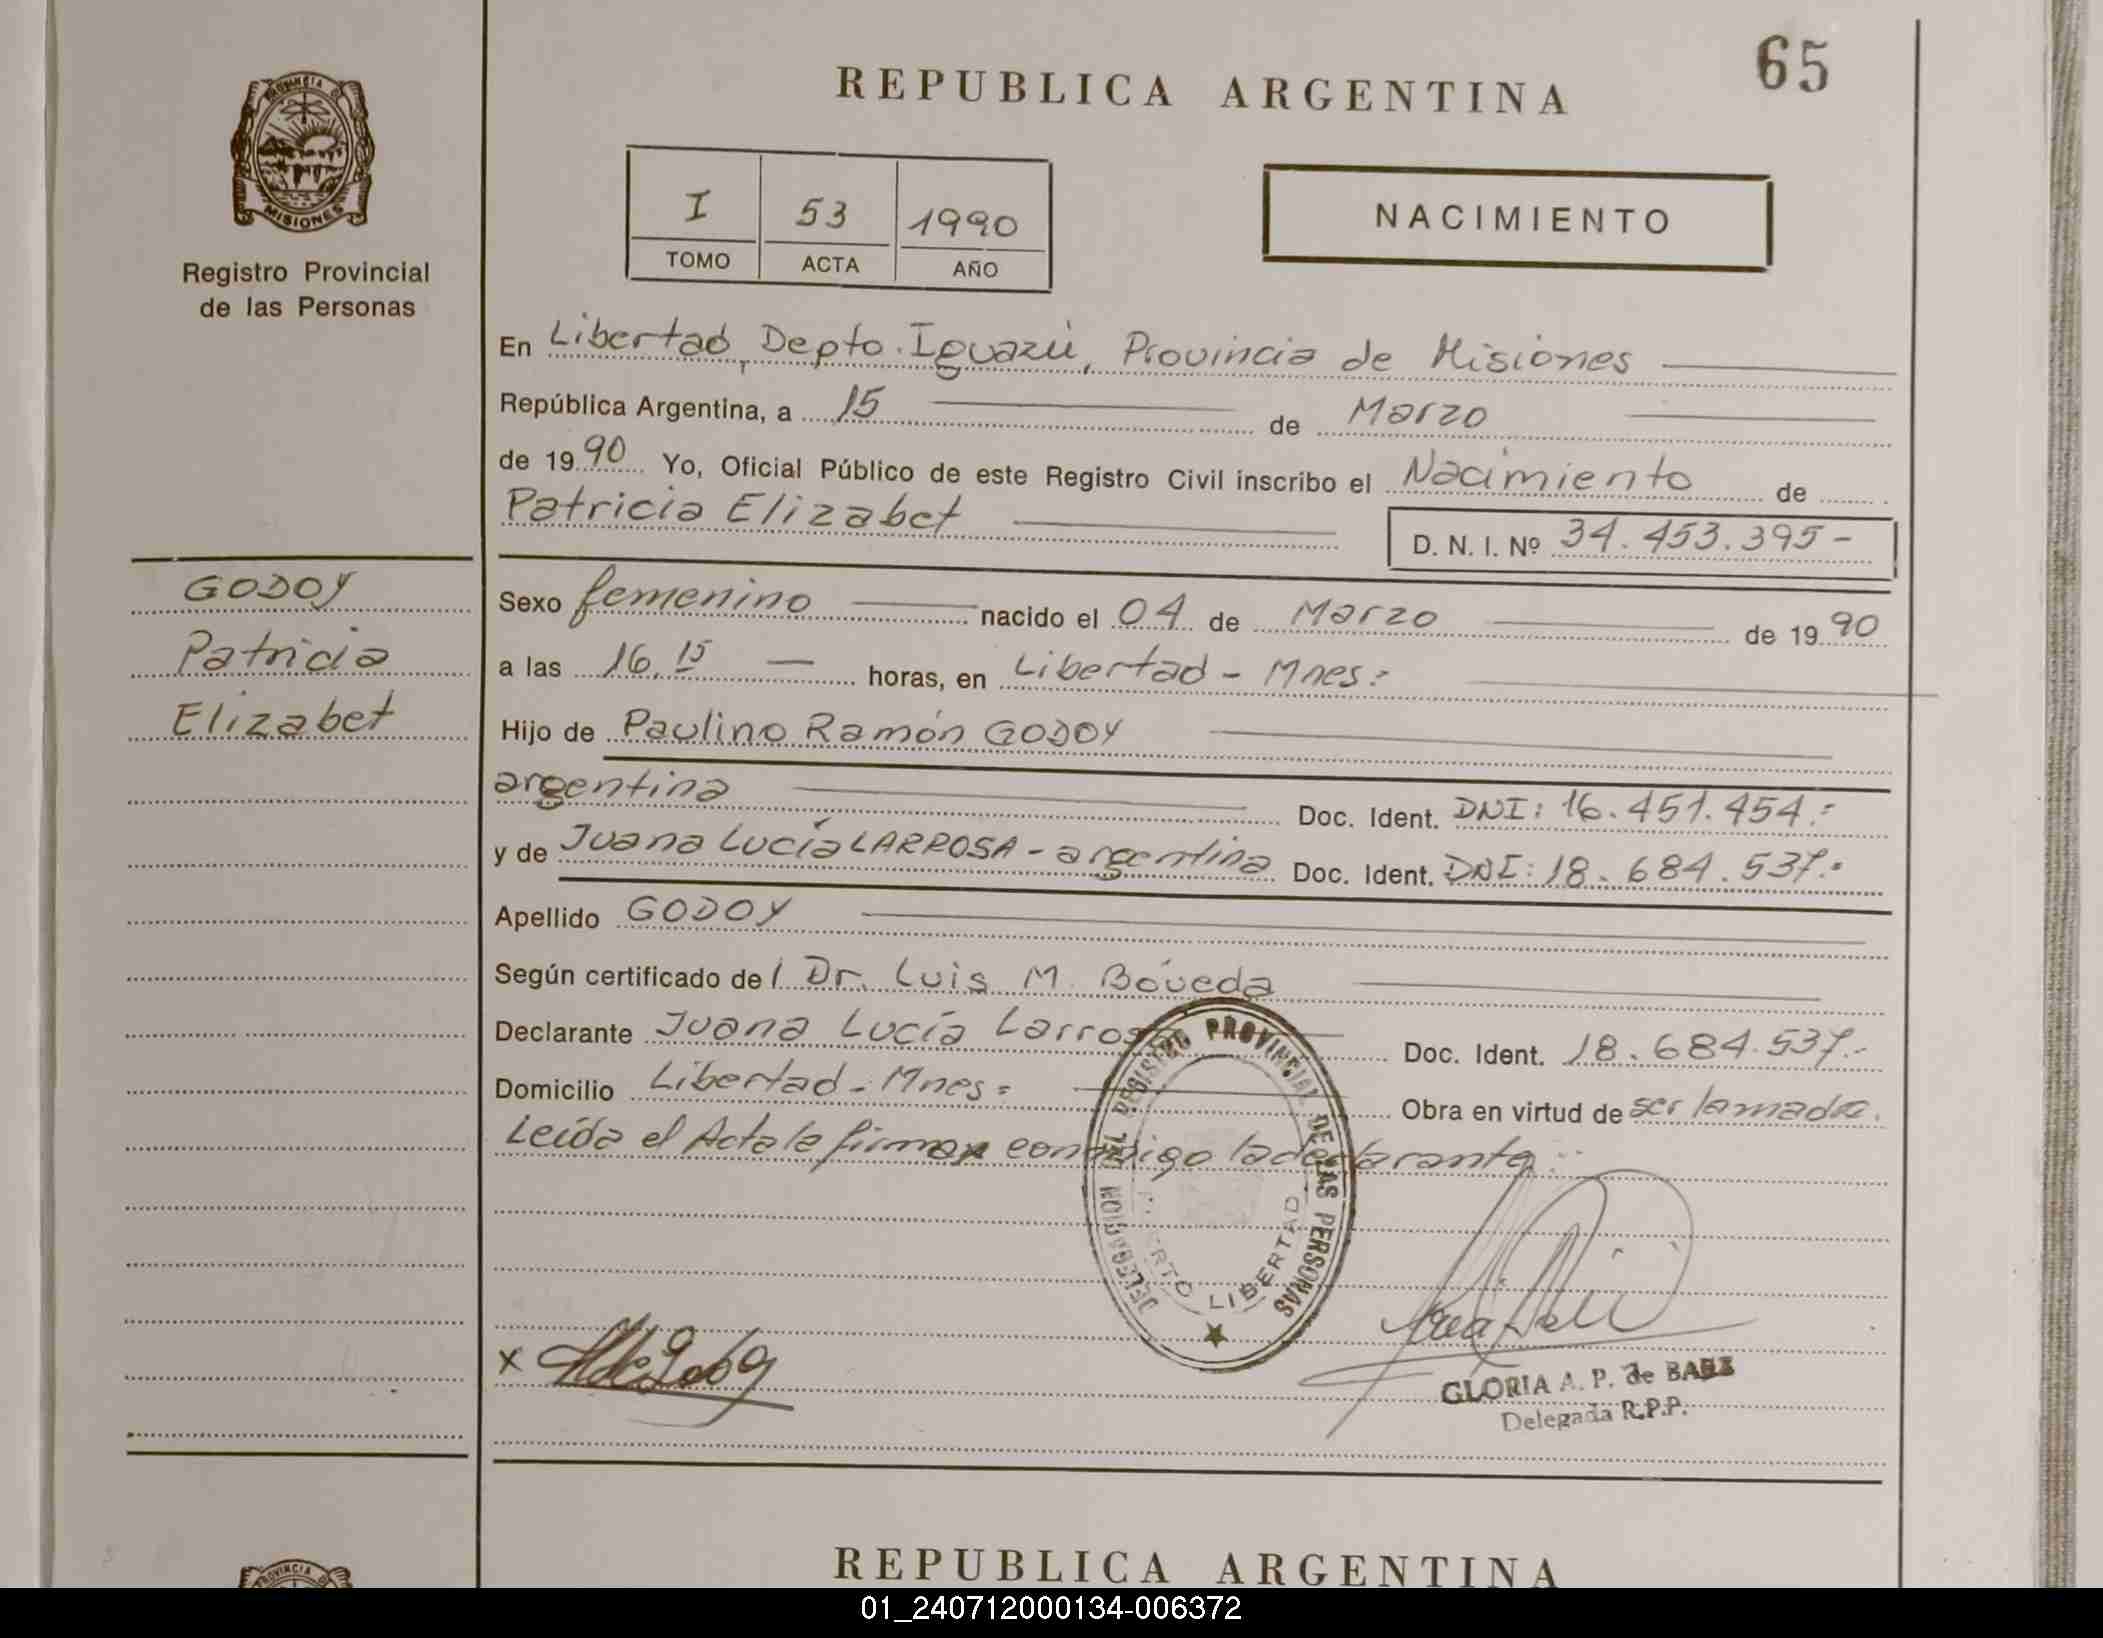 65
REPUBLICA ARGENTINA
PROVINCIA D
MISIONES
Registro Provincial
de las Personas
I 53 1990
TOMO ACTA AÑO
NACIMIENTO
En Libertad, Depto. Iguazú, Provincia de Misiones
República Argentina, a 15 de Marzo
de 1990 Yo, Oficial Público de este Registro Civil inscribo el Nacimiento de
Patricia Elizabet
D. N. I. Nº 34.453.395-
GODOY
Patricia
Elizabet
Sexo femenino nacido el 04 de Marzo de 1990
a las 16,15 horas, en Libertad - Mnes:
Hijo de Paulino Ramón GODOY
argentina Doc. Ident. DNI: 16.451.454.-
y de Juana Lucía LARROSA - argentina Doc. Ident. DNI: 18.684.537.-
Apellido GODOY
Según certificado del Dr. Luis M. Bóveda
Declarante Juana Lucía Larrosa Doc. Ident. 18.684.537.-
Domicilio Libertad - Mnes: Obra en virtud de ser la madre.
Leída el Acta la firma conmigo la declarante.
DELEGACION DEL REGISTRO PROVINCIAL DE LAS PERSONAS
LIBERTAD
x
GLORIA A. P. de BAEZ
Delegada R.P.P.
REPUBLICA ARGENTINA
PROVINCIA D
01_240712000134-006372